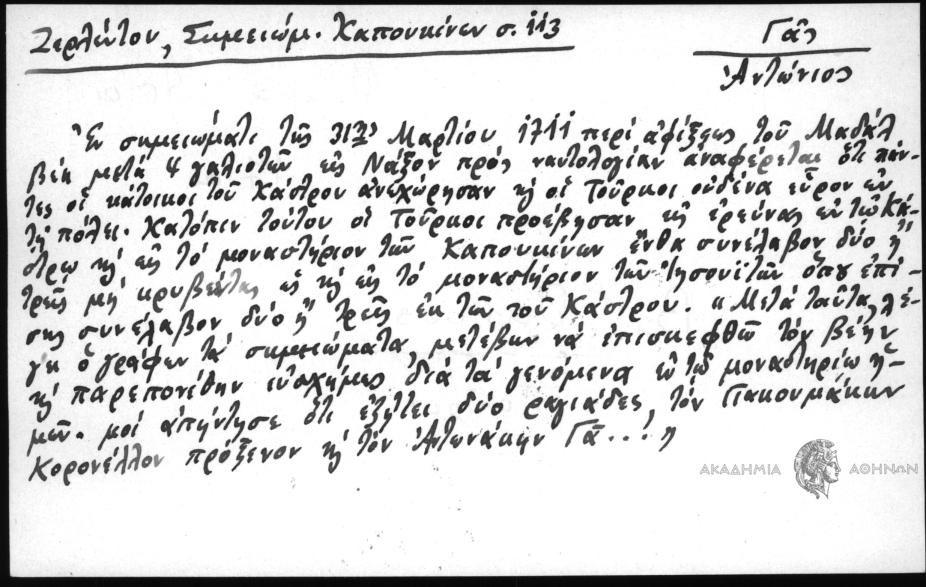 Ζερλέντου, Σημειώμ. Καπουκίνων σ. 113
Γᾶς
Ἀντώνιος
Ἐν σημειώματι τῆς 31ης Μαρτίου 1711 περί ἀφίξεως τοῦ
βέη μετά 4 γαλιοτῶν εἰς Νάξον πρός ναυτολογίαν ἀναφέρεται ὅτι πάν-
τες οἱ κάτοικοι τοῦ Κάστρου ἀνεχώρησαν κ οἱ Τοῦρκοι οὐδένα εὗρον ἐν
τῇ πόλει. Κατόπιν τούτου οἱ Τοῦρκοι προέβησαν εἰς ἐρεύνας ἐν τῶ Κά-
στρω κ εἰς τό μοναστήριον τῶν Καπουκίνων ἔνθα συνέλαβον δύο ἤ
τρεῖς μή κρυβέντας ὡς κ εἰς τό μοναστήριον τῶν Ἰησουϊτῶν ὅπου ἐπί-
σης συνέλαβον δύο ἤ τρεῖς ἐκ τῶν τοῦ Κάστρου. "Μετά ταῦτα, λέ-
γει ὁ γράφων τά σημειώματα, μετέβην νά ἐπισκεφθῶ τόν βέην
κ παρεπονέθην εὐσχήμως διά τά γενόμενα ἐν τῶ μοναστηρίω ἡ-
μῶν. μοί ἀπήντησε ὅτι ἐζήτει δύο ραγιάδες, τόν Γιακουμάκην
Κορονέλλον πρόξενον κ τόν Ἀντωνάκην Γᾶ...."
ΑΚΑΔΗΜΙΑ ΑΘΗΝΩΝ